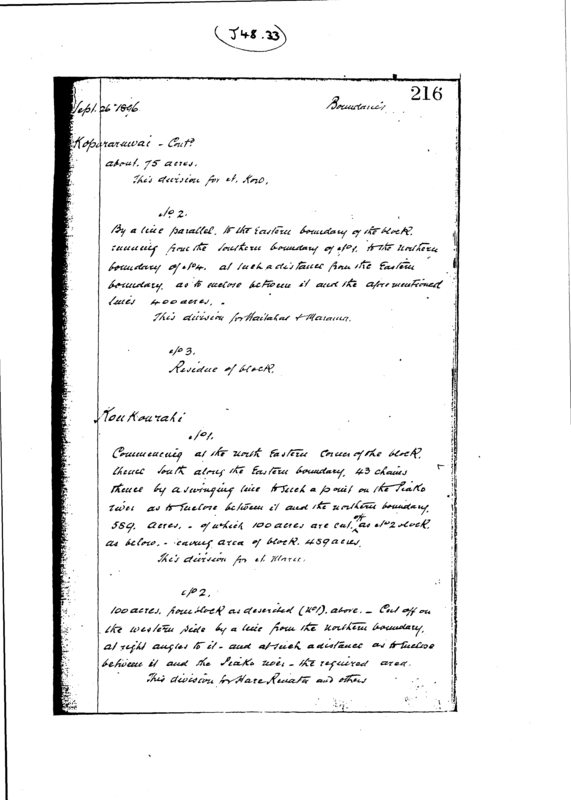 (J48.33)
216
Sept. 26th 1896
Boundaries
Kopuraruwai - Contd
about. 75 acres.
This division for
No 2.
By a line parallel. to the Eastern boundary of the block.
running from the Southern boundary of No1. to the northern
boundary of No4. at such a distance from the Eastern
boundary. as to enclose between it and the aforementioned
lines 400 acres. -
This division for
No 3.
Residue of block.
Koukourahi
No1.
Commencing at the north Eastern Corner of the block.
thence South along the Eastern boundary. 43 chains
thence by a swinging line to such a point on the Piako
river as to Enclose between it and the northern boundary.
589. acres. - of which 100 acres are cut off as No2 block
as below. - leaving area of block. 489 acres.
This division for
No 2.
100 acres. from block as described (No1). above. - Cut off on
the western side by a line from the northern boundary.
at right angles to it - and at such a distance as to Enclose
between it and the Piako river - the required area.
This division for Hare Renata and others